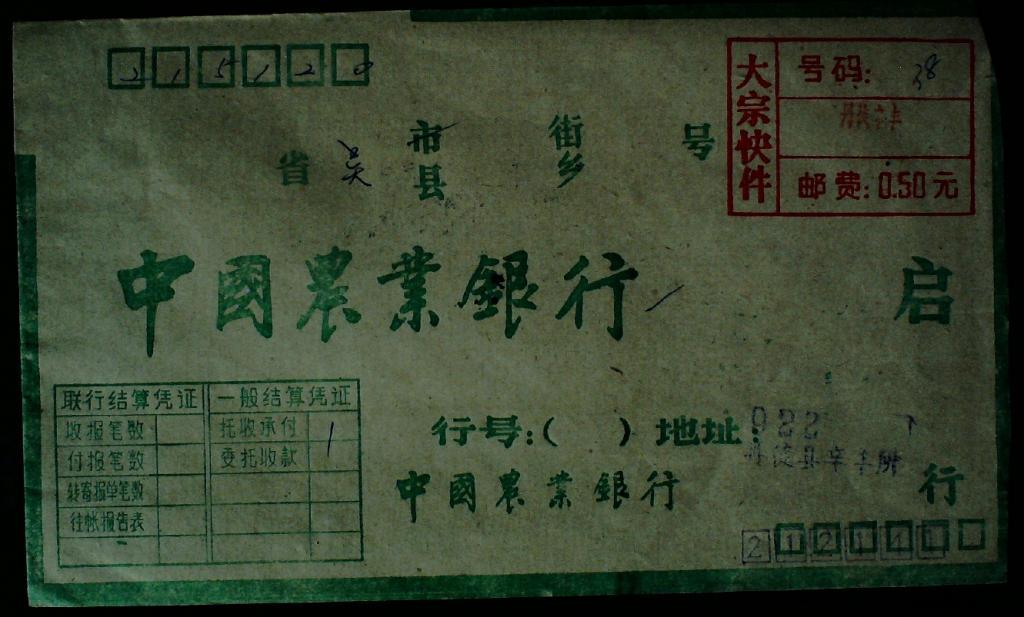 215120
大宗快件
号码: 38
邮费: 0.50元
省 吴 市 街 号
县 乡
中國農業銀行 启
联行结算凭证 一般结算凭证
收报笔数 托收承付 1
付报笔数 委托收款
转寄报单笔数
往帐报告表
行号:( ) 地址: 922
中國農業銀行 行
212141